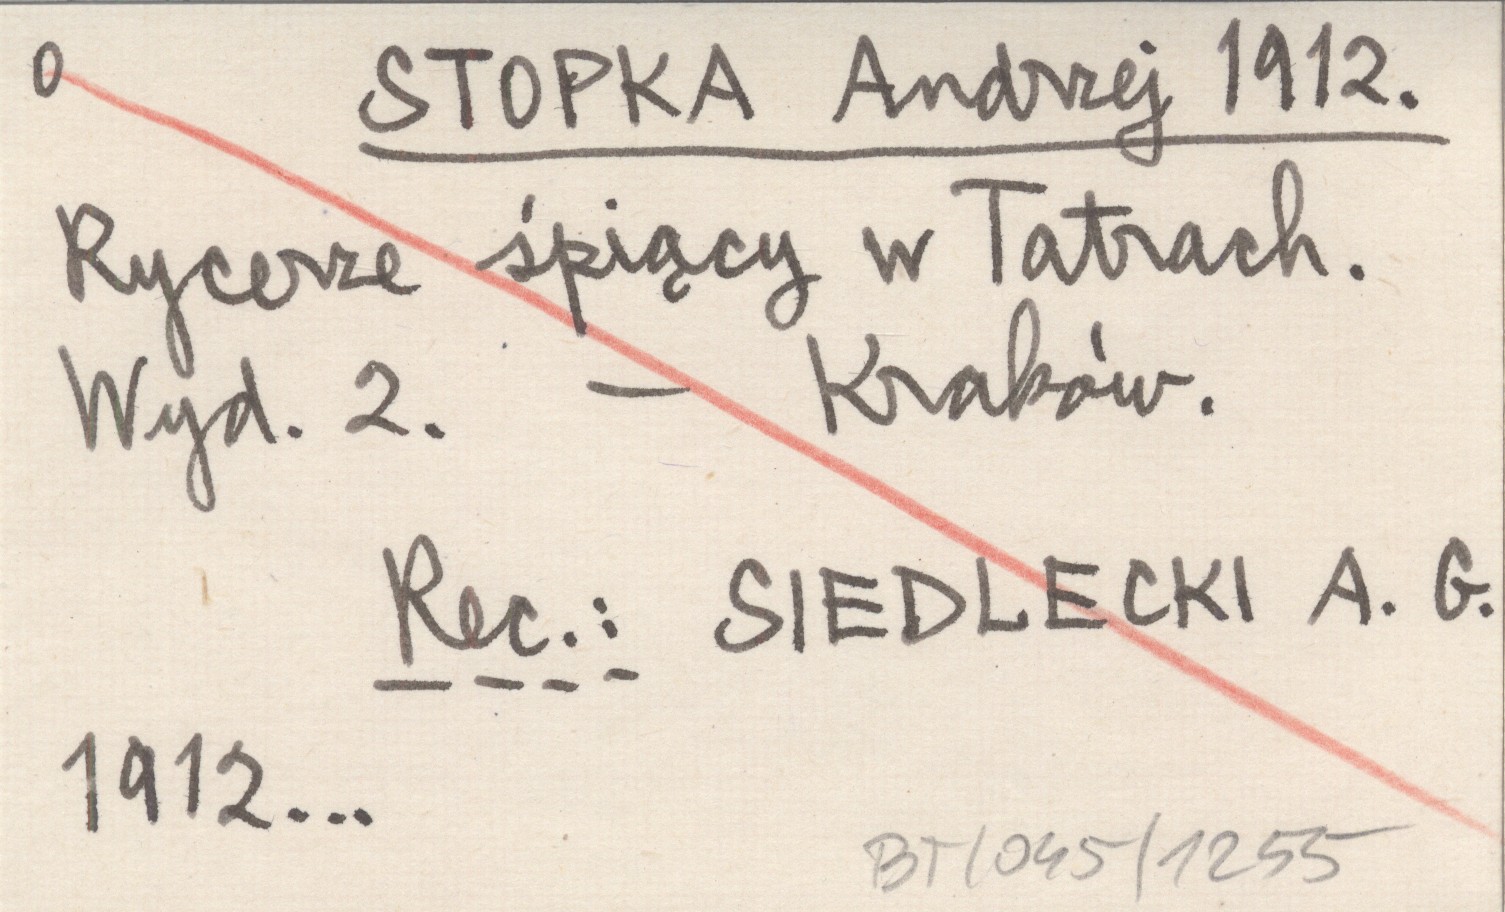 0 STOPKA Andrzej 1912.
Rycerze śpiący w Tatrach.
Wyd. 2. — Kraków.
Rec.: SIEDLECKI A. G.
1912...
BT/045/1255